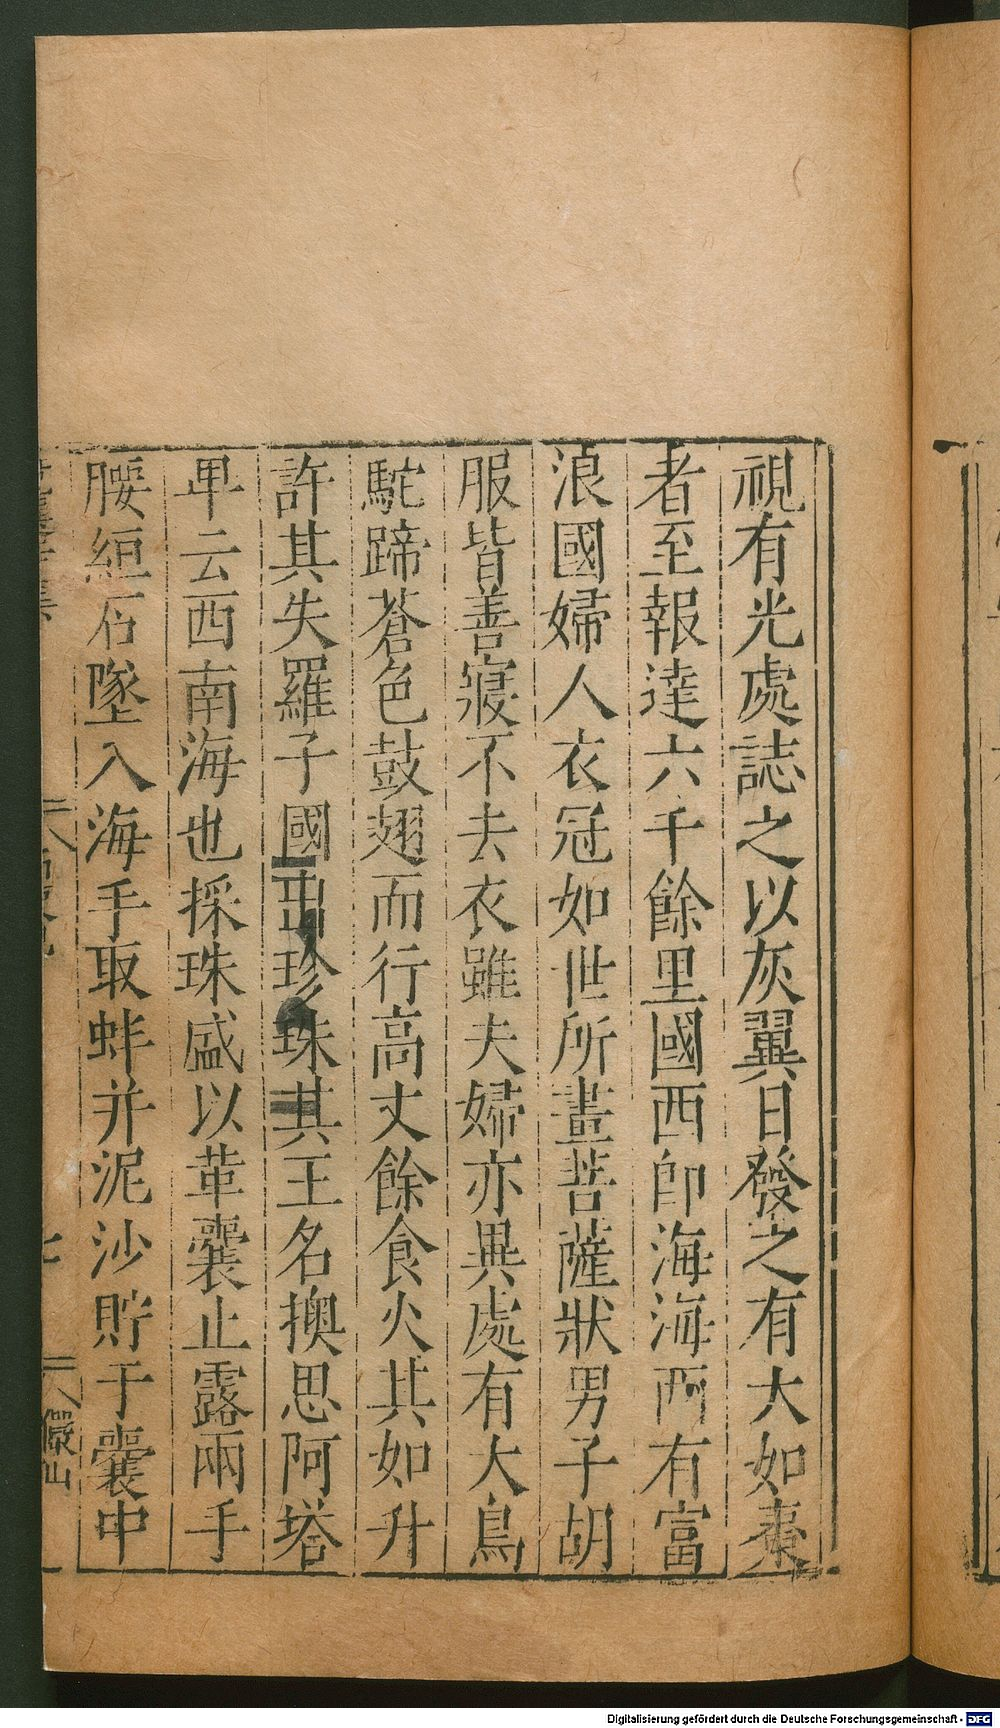 視有光處誌之以灰翼日發之有大如棗
者至報達六千餘里國西即海海西有富
浪國婦人衣冠如世所畫菩薩狀男子胡
服皆善寢不去衣雖夫婦亦異處有大鳥
駝蹄蒼色鼓翅而行高丈餘食火其如升
許其失羅子國出珍珠其王名換思阿塔
卑云西南海也採珠盛以革囊止露兩手
腰絙石墜入海手取蚌并泥沙貯于囊中
儼山
Digitalisierung gefördert durch die Deutsche Forschungsgemeinschaft - DFG